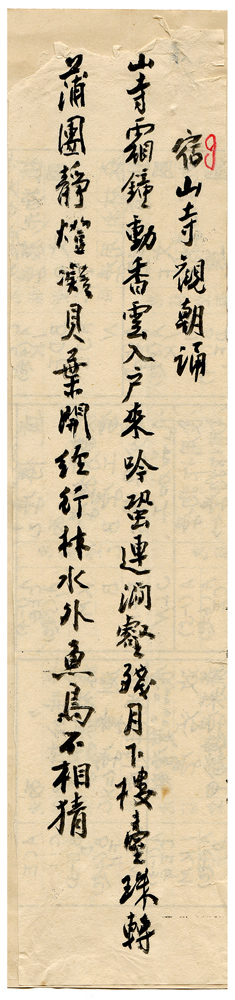 9
宿山寺觀朝誦
山寺霜鐘動香雲入户來吟蛩連澗壑殘月下樓臺珠轉
蒲團靜燈凝貝葉開經行林水外魚鳥不相猜